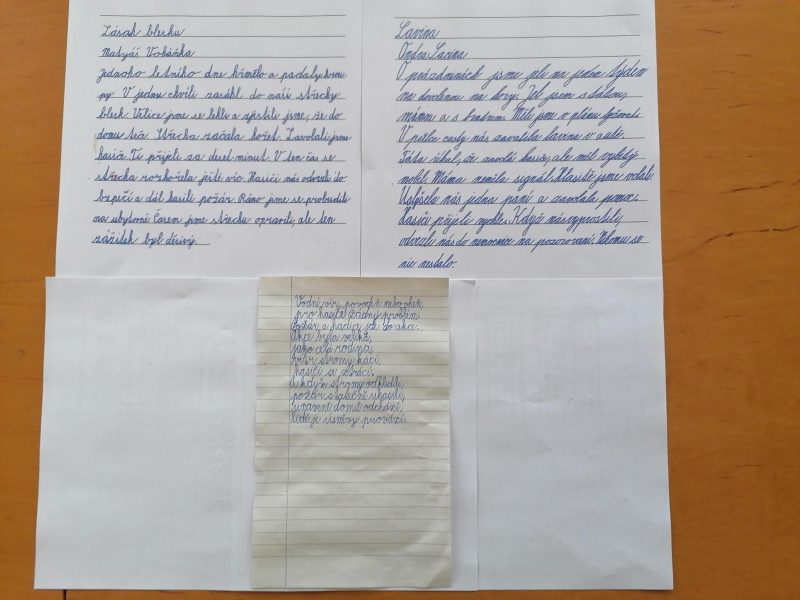 Zásah blesku
Matyáš Vrháňka
Jednoho letního dne hřmělo a padaly krou-
py. V jednu chvíli zasáhl do naší střechy
blesk. Velice jsme se lekli a zjistili jsme, že do
domu teče. Střecha začala hořet. Zavolali jsme
hasiče. Ti přijeli za deset minut. V ten čas se
střecha rozhořela ještě víc. Hasiči nás odvezli do
bezpečí a dál hasili požár. Ráno jsme se probudili
na ubytovně. Časem jsme střechu opravili, ale ten
zážitek byl děsivý.
Lavina
Ondra Lacina
O prázdninách jsme jeli na jeden týden
na dovolenou na hory. Jel jsem s tátou,
mámou a s bratrem. Měli jsme v plánu lyžování.
V půlce cesty nás zavalila lavina v autě.
Táta říkal, že zavolá hasiče, ale měl vybitý
mobil. Máma neměla signál. Hlasitě jsme volali.
Uslyšela nás jedna paní a zavolala pomoc.
Hasiči přijeli rychle. Když nás vyprostili,
odvezli nás do nemocnice na pozorování. Nikomu se
nic nestalo.
Vodní vír, povodeň nebo oheň,
pro hasiče žádný problém.
Požár a hadice jde do akce.
Akce byla veliká,
jako celá rodina.
Vítr stromy kácí,
hasiči se neztrácí.
A když stromy odklidili,
požár statečně uhasili,
unaveni domů odchází,
lidé je úsměvy provází.